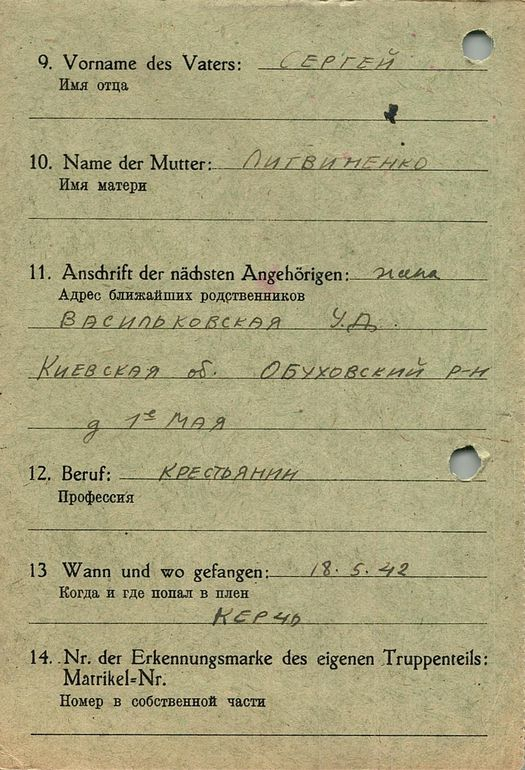 9. Vorname des Vaters: СЕРГЕЙ
Имя отца
10. Name der Mutter: ЛИТВИНЕНКО
Имя матери
11. Anschrift der nächsten Angehörigen: жена
Адрес ближайших родственников
ВАСИЛЬКОВСКАЯ У.Д.
КИЕВСКАЯ об. ОБУХОВСКИЙ Р-Н
д 1е МАЯ
12. Beruf: КРЕСТЬЯНИН
Профессия
13 Wann und wo gefangen: 18.5.42
Когда и где попал в плен
КЕРЧЬ
14. Nr. der Erkennungsmarke des eigenen Truppenteils:
Matrikel-Nr.
Номер в собственной части